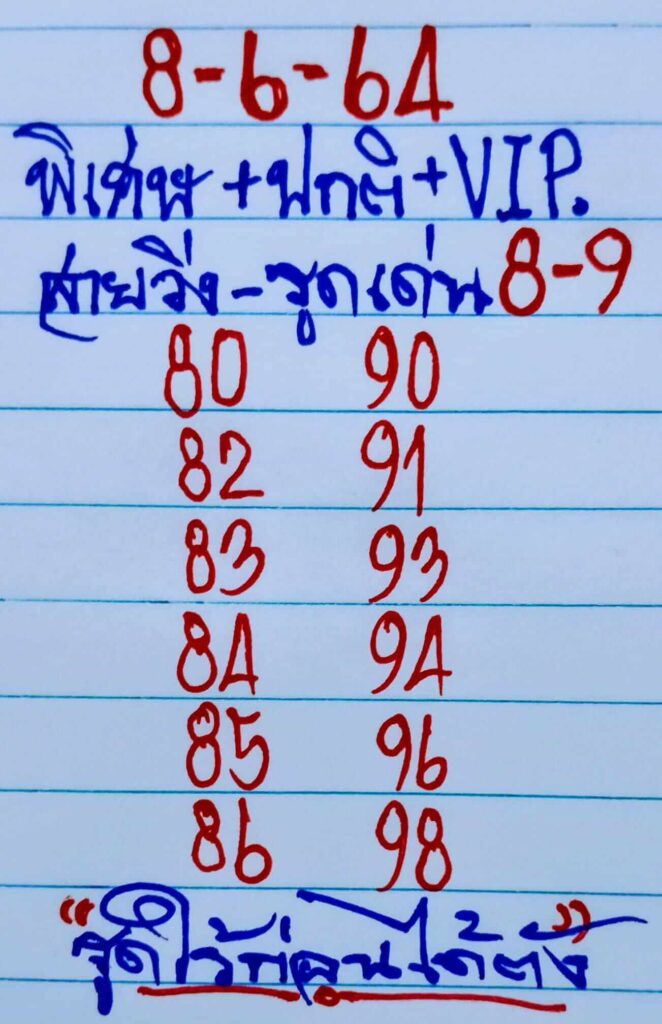 8-6-64
พิเศษ+ปกติ+VIP.
สายวิ่ง-รูดเด่น 8-9
80 90
82 91
83 93
84 94
85 96
86 98
"รูดไว้ก่อนได้ตัง"